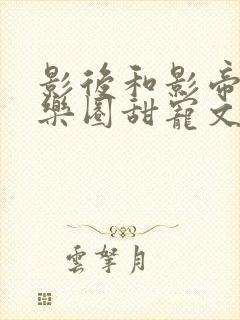 影後和影帝
樂園甜寵文
雲拏月